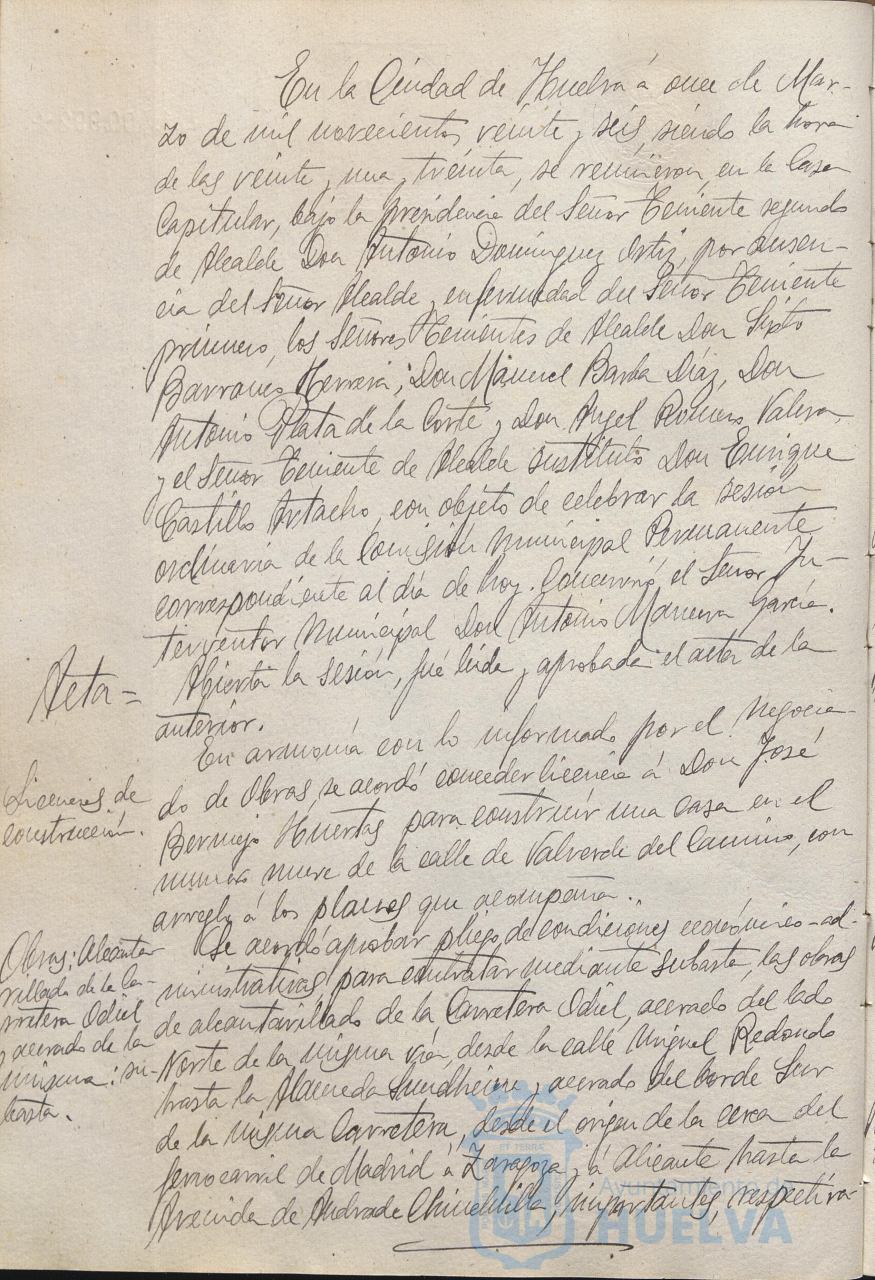 En la Ciudad de Huelva á once de Mar-
zo de mil novecientos veinte y seis, siendo la hora
de las veinte y una y treinta, se reunieron en la Casa
Capitular, bajo la presidencia del Señor Teniente segundo
de Alcalde Don Antonio Domínguez Ortiz, por ausen-
cia del Señor Alcalde y enfermedad del Señor Teniente
primero, los Señores Tenientes de Alcalde Don Sixto
Barranco Herrera; Don Manuel Barba Díaz, Don
Antonio Plata de la Corte y Don Angel Romero Valera,
y el Señor Teniente de Alcalde sustituto Don Enrique
Castillo Artacho, con objeto de celebrar la sesión
ordinaria de la Comisión Municipal Permanente
correspondiente al día de hoy. Concurrió el Señor In-
terventor Municipal Don Antonio García.
Acta=
Abierta la sesión, fué leída y aprobada el acta de la
anterior.
Licencias de
construcción.
En armonía con lo informado por el Negocia-
do de Obras, se acordó conceder licencia á Don José
Bermejo Huertas para construir una casa en el
número nueve de la calle de Valverde del Camino, con
arreglo á los planos que acompaña.
Obras: Alcanta-
rillado de la Ca-
rretera Odiel
y acerado de la
misma: su-
basta.
Se acordó aprobar pliego de condiciones económico-ad-
ministrativas para contratar mediante subasta, las obras
de alcantarillado de la Carretera Odiel, acerado del lado
Norte de la misma vía, desde la calle Miguel Redondo
hasta la Alameda Sundheim y acerado del borde Sur
de la misma Carretera, desde el origen de la cerca del
ferrocarril de Madrid á Zaragoza y á Alicante hasta la
Avenida de Andrade Chinchilla, importantes, respectiva-
Ayuntamiento de
HUELVA